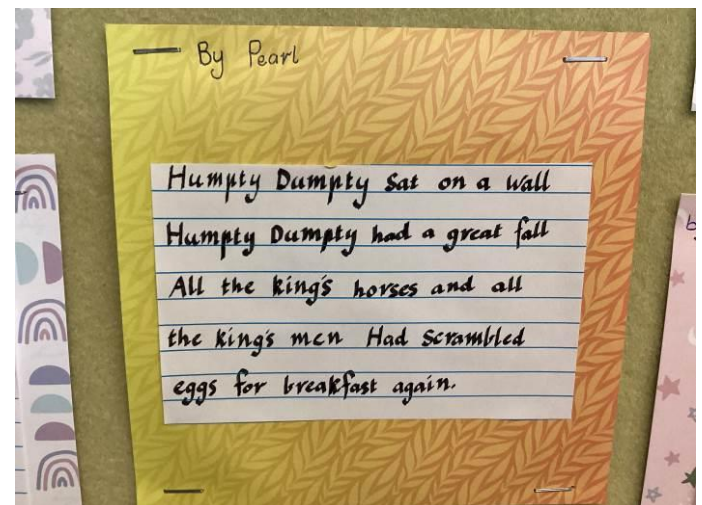 By Pearl
Humpty Dumpty Sat on a wall
Humpty Dumpty had a great fall
All the king's horses and all
the king's men Had Scrambled
eggs for breakfast again.
b